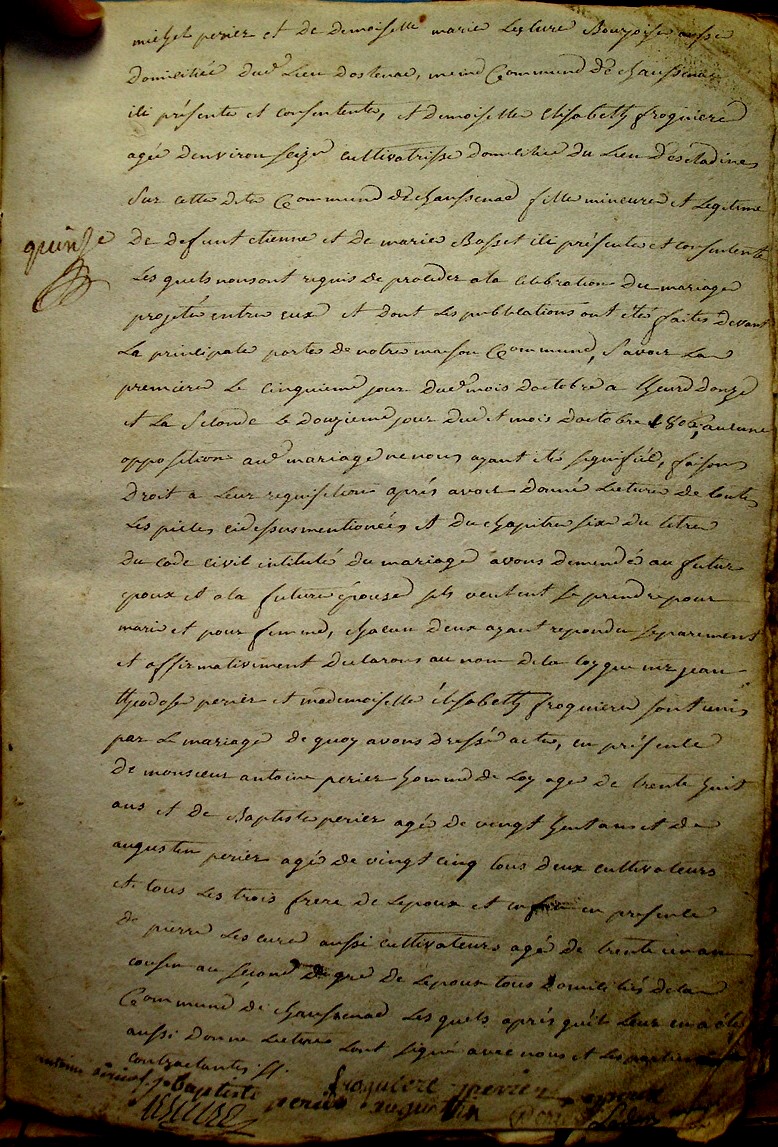 michel perier et de demoiselle marie Lescure Bourgoise aussi
Domiciliée dud Lieu Dostenac, meme Commune de chaussenac
ici présente et consentente, et Demoiselle Elisabeth froquiere
agée denviron seize cultivatrisse domiciliée du Lieu Descladines
Sur cette dite Commune de chaussenac fille mineure et Legitime
quinze
De defunt etienne et de marie Basset ici présente et consentente
Les quels nous ont requis de proceder a la celebration du mariage
projeté entre eux et dont Les publications ont été faites devant
La principale porte de notre maison Commune, Savoir La
premiere Le cinquieme jour dud mois doctobre a heure donze
et La Seconde Le Douzieme jour dudit mois doctobre aucune
opposition aud mariage ne nous ayant été signifiée, faisons
Droit a Leur requisition après avoir Donné Lecture de toutes
Les pieces cidessus mentionées et du chapitre six du titre
du code civil intitulé du mariage avons demendé au futur
epoux et a la future épouse sils veulent se prendre pour
mari et pour femme, chacun deux ayant repondu separement
et affirmativement declarons au nom de la loy que mr jean
theodose perier et mademoiselle élisabeth froquiere sont unis
par Le mariage de quoy avons dressé acte, en présence
De monsieur antoine perier homme de Loy agé de trente huit
ans et de Baptiste perier agé de vingt huit ans et de
augustin perier agé de vingt cinq tous deux cultivateurs
et tous Les trois frere de Lepoux et en presence
de pierre Lescure aussi cultivateurs agé de trente un an
cousin au second degré de Lepoux tous Domiciliés de la
Commune de chaussenac Les quels après quil Leur en a été
aussi Donné Lecture sont signé avec nous et Les parties
contractantes
Baptiste perier
froquiere
perier
augustin
Lescure